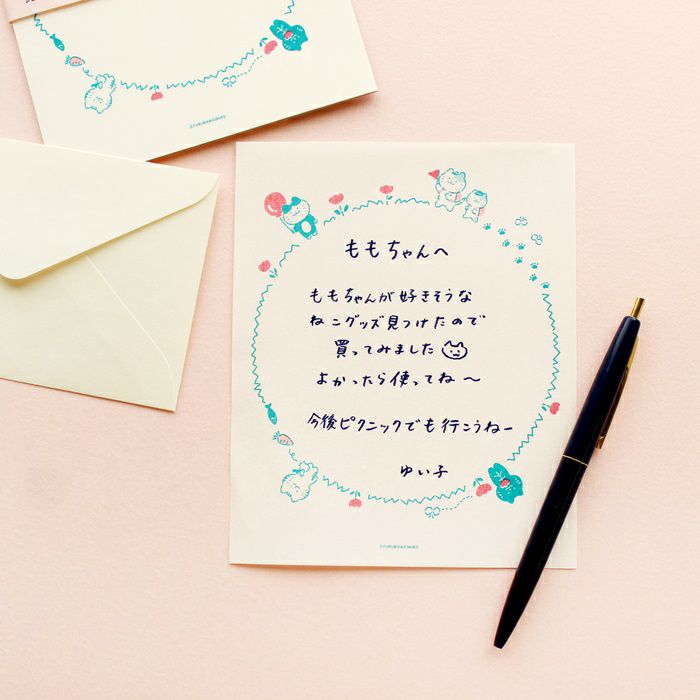 ©YURUKAWASHIKO
ももちゃんへ
ももちゃんが好きそうな
ねこグッズ見つけたので
買ってみました
よかったら使ってね〜
今後ピクニックでも行こうねー
ゆい子